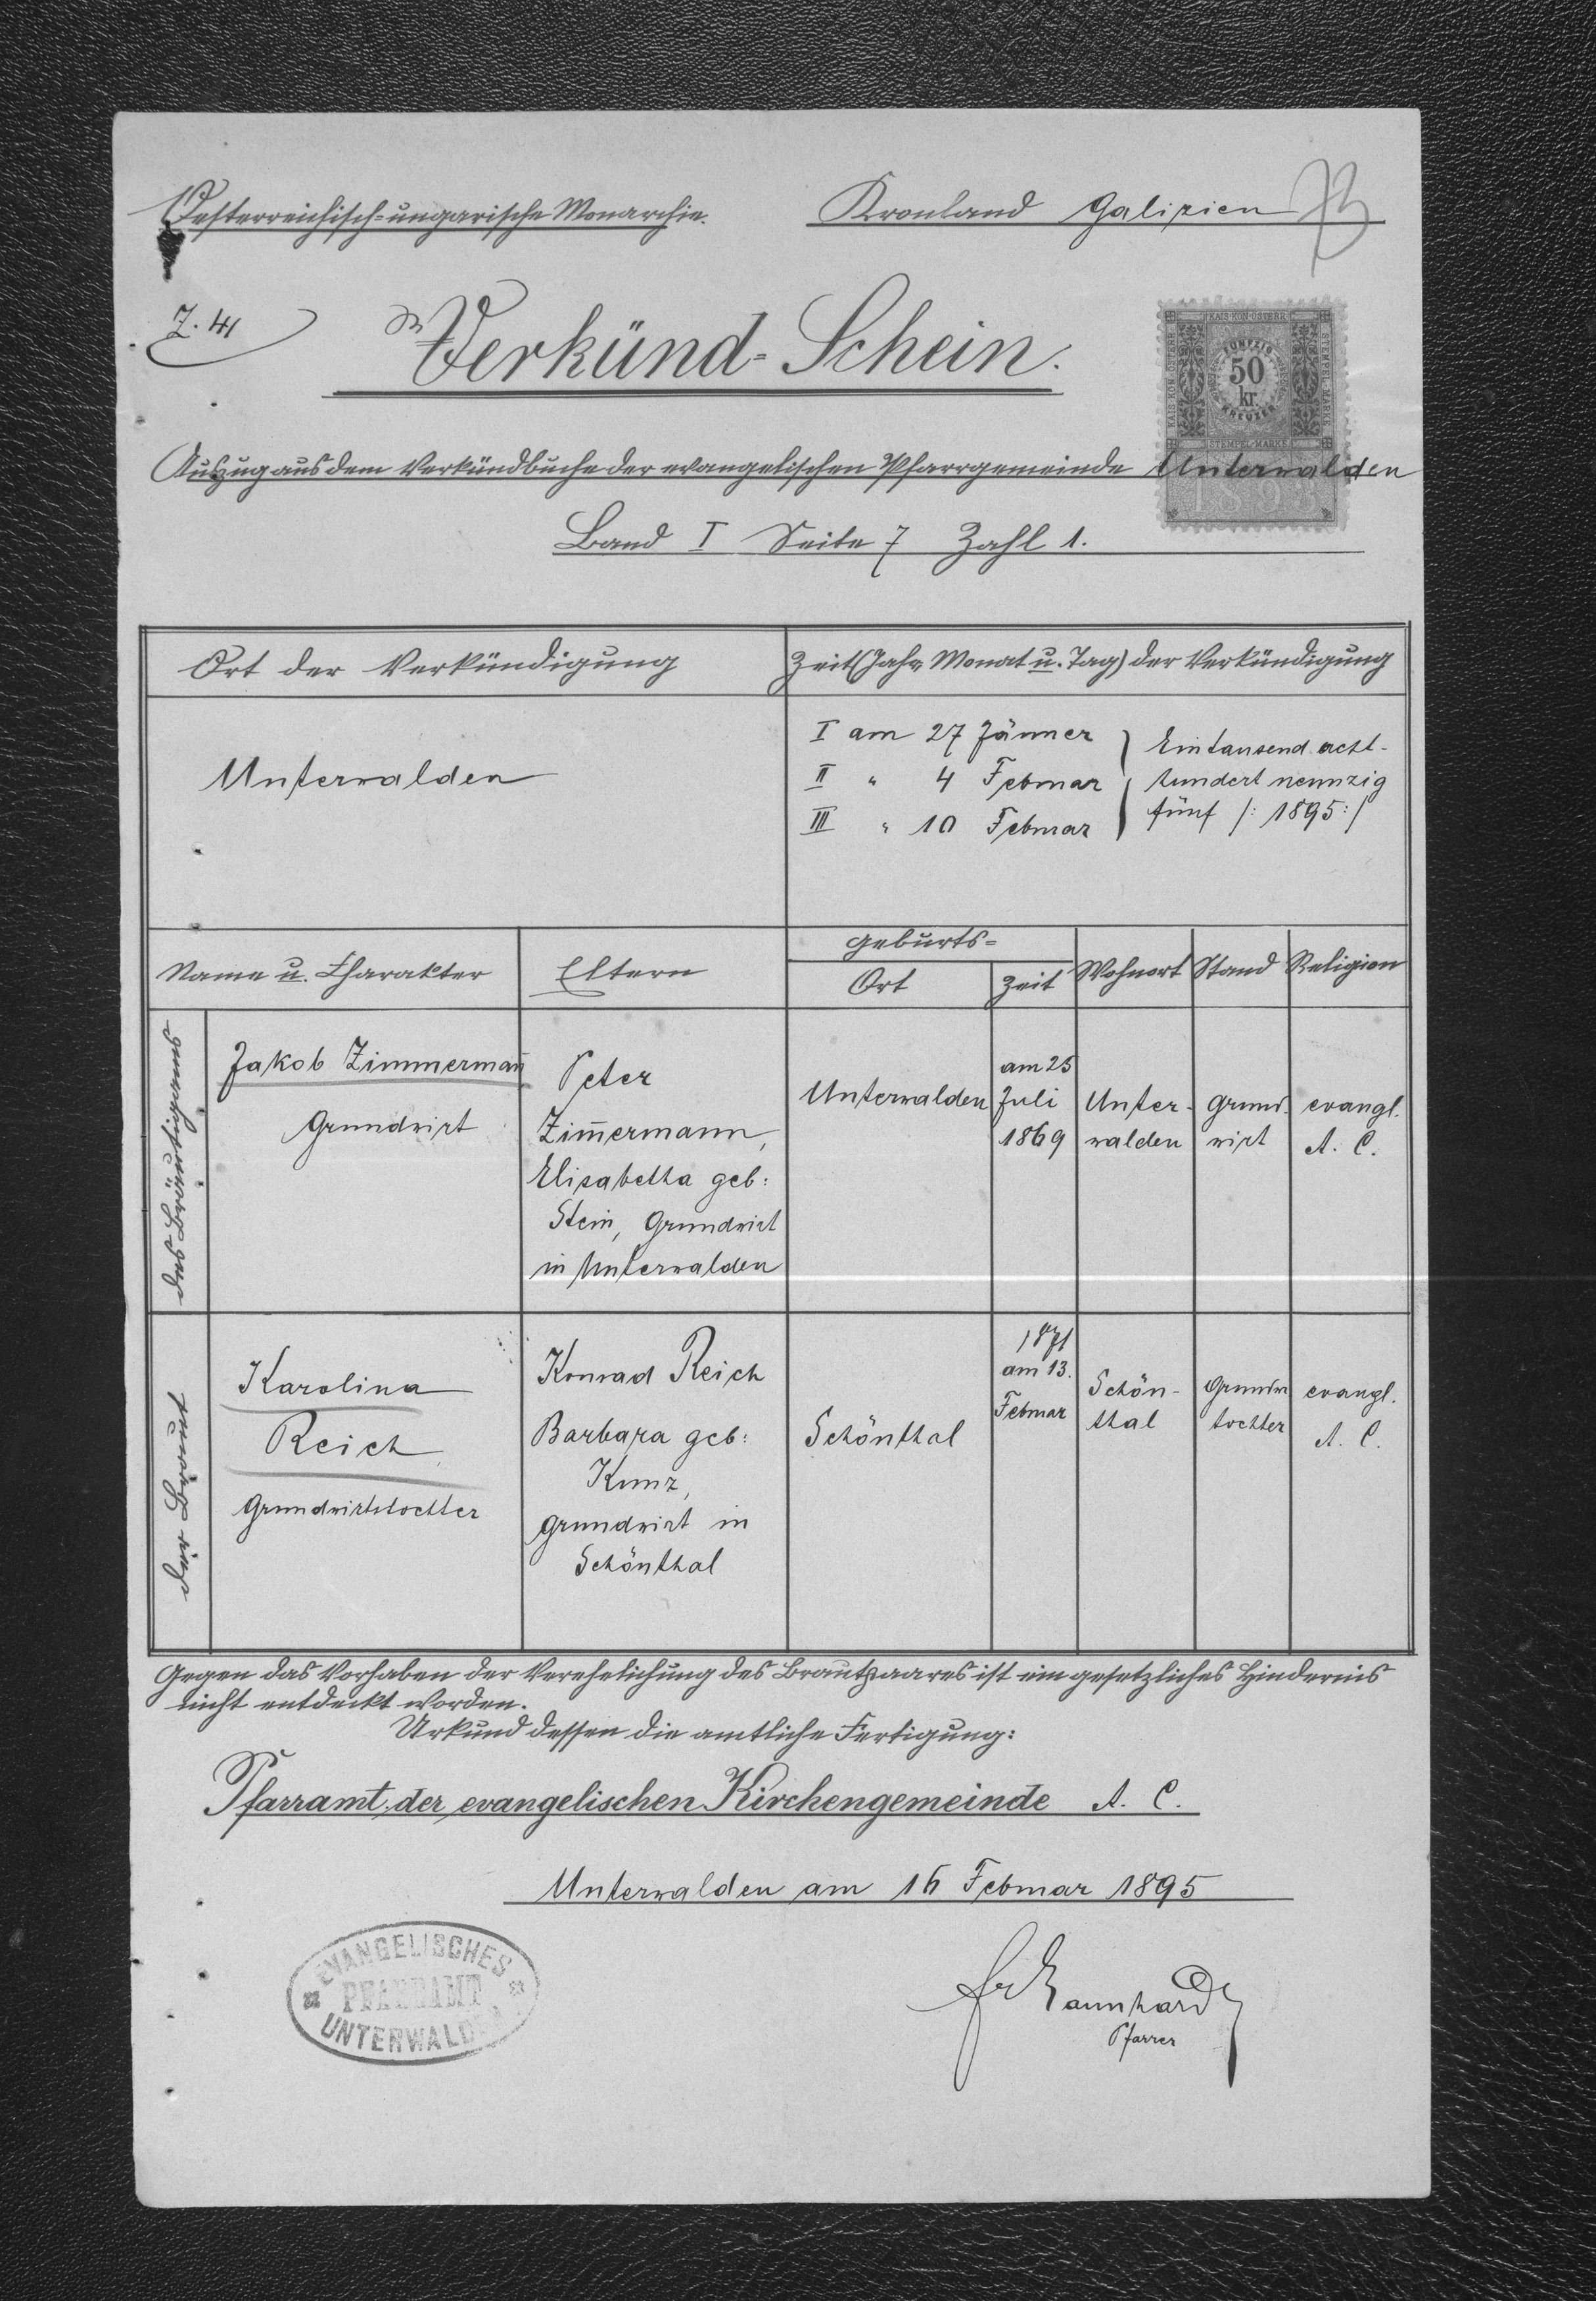 Oesterreichisch-ungarische Monarchie.
Kronland Galizien
Z. 41
Verkünd-Schein.
KAIS·KÖN·ÖSTERR
STEMPEL-MARKE
FÜNFZIG
50
kr.
KREUZER
STEMPEL-MARKE
1893
Auszug aus dem Verkündbuche der evangelischen Pfarrgemeinde Unterwalden
Band I Seite 7 Zahl 1.
Ort der Verkündigung
Zeit (Jahr Monat u. Tag) der Verkündigung
Unterwalden
I am 27 Jänner
II " 4 Februar
III " 10 Februar
Eintausend acht-
hundert neunzig
fünf /: 1895 :/
Name u. Charakter
Eltern
Geburts-
Ort
Zeit
Wohnort
Stand
Religion
des Bräutigams
Jakob Zimmerman̄
Grundwirt
Peter
Zim̄ermann,
Elisabetha geb:
Stein, Grundwirt
in Unterwalden
Unterwalden
am 25
Juli
1869
Unter-
walden
Grund-
wirt
evangl.
A. C.
der Braut
Karolina
Reich
Grundwirtstochter
Konrad Reich
Barbara geb:
Kunz,
Grundwirt in
Schönthal
Schönthal
1871
am 13.
Februar
Schön-
thal
tochter
evangl.
A. C.
Gegen das Vorhaben der Verehelichung des Brautpaares ist ein gesetzliches Hindernis
nicht entdeckt worden.
Urkund dessen die amtliche Fertigung:
Pfarramt der evangelischen Kirchengemeinde A. C.
Unterwalden am 16 Februar 1895
EVANGELISCHES
PFARRAMT
UNTERWALDEN
Pfarrer